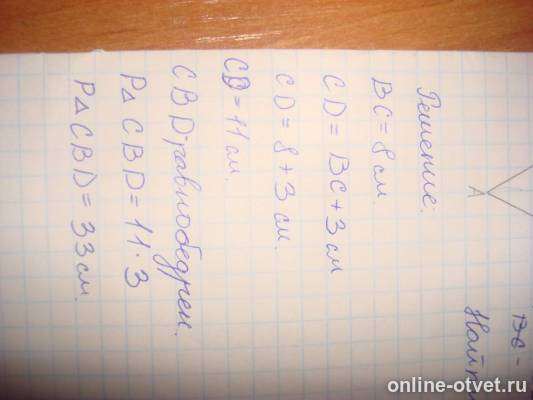 Решение:
BC = 8 см.
CD = BC + 3 см
CD = 8 + 3 см.
CD = 11 см.
CBD-равнобедрен.
P△CBD = 11·3
P△CBD = 33 см.
A
online-otvet.ru